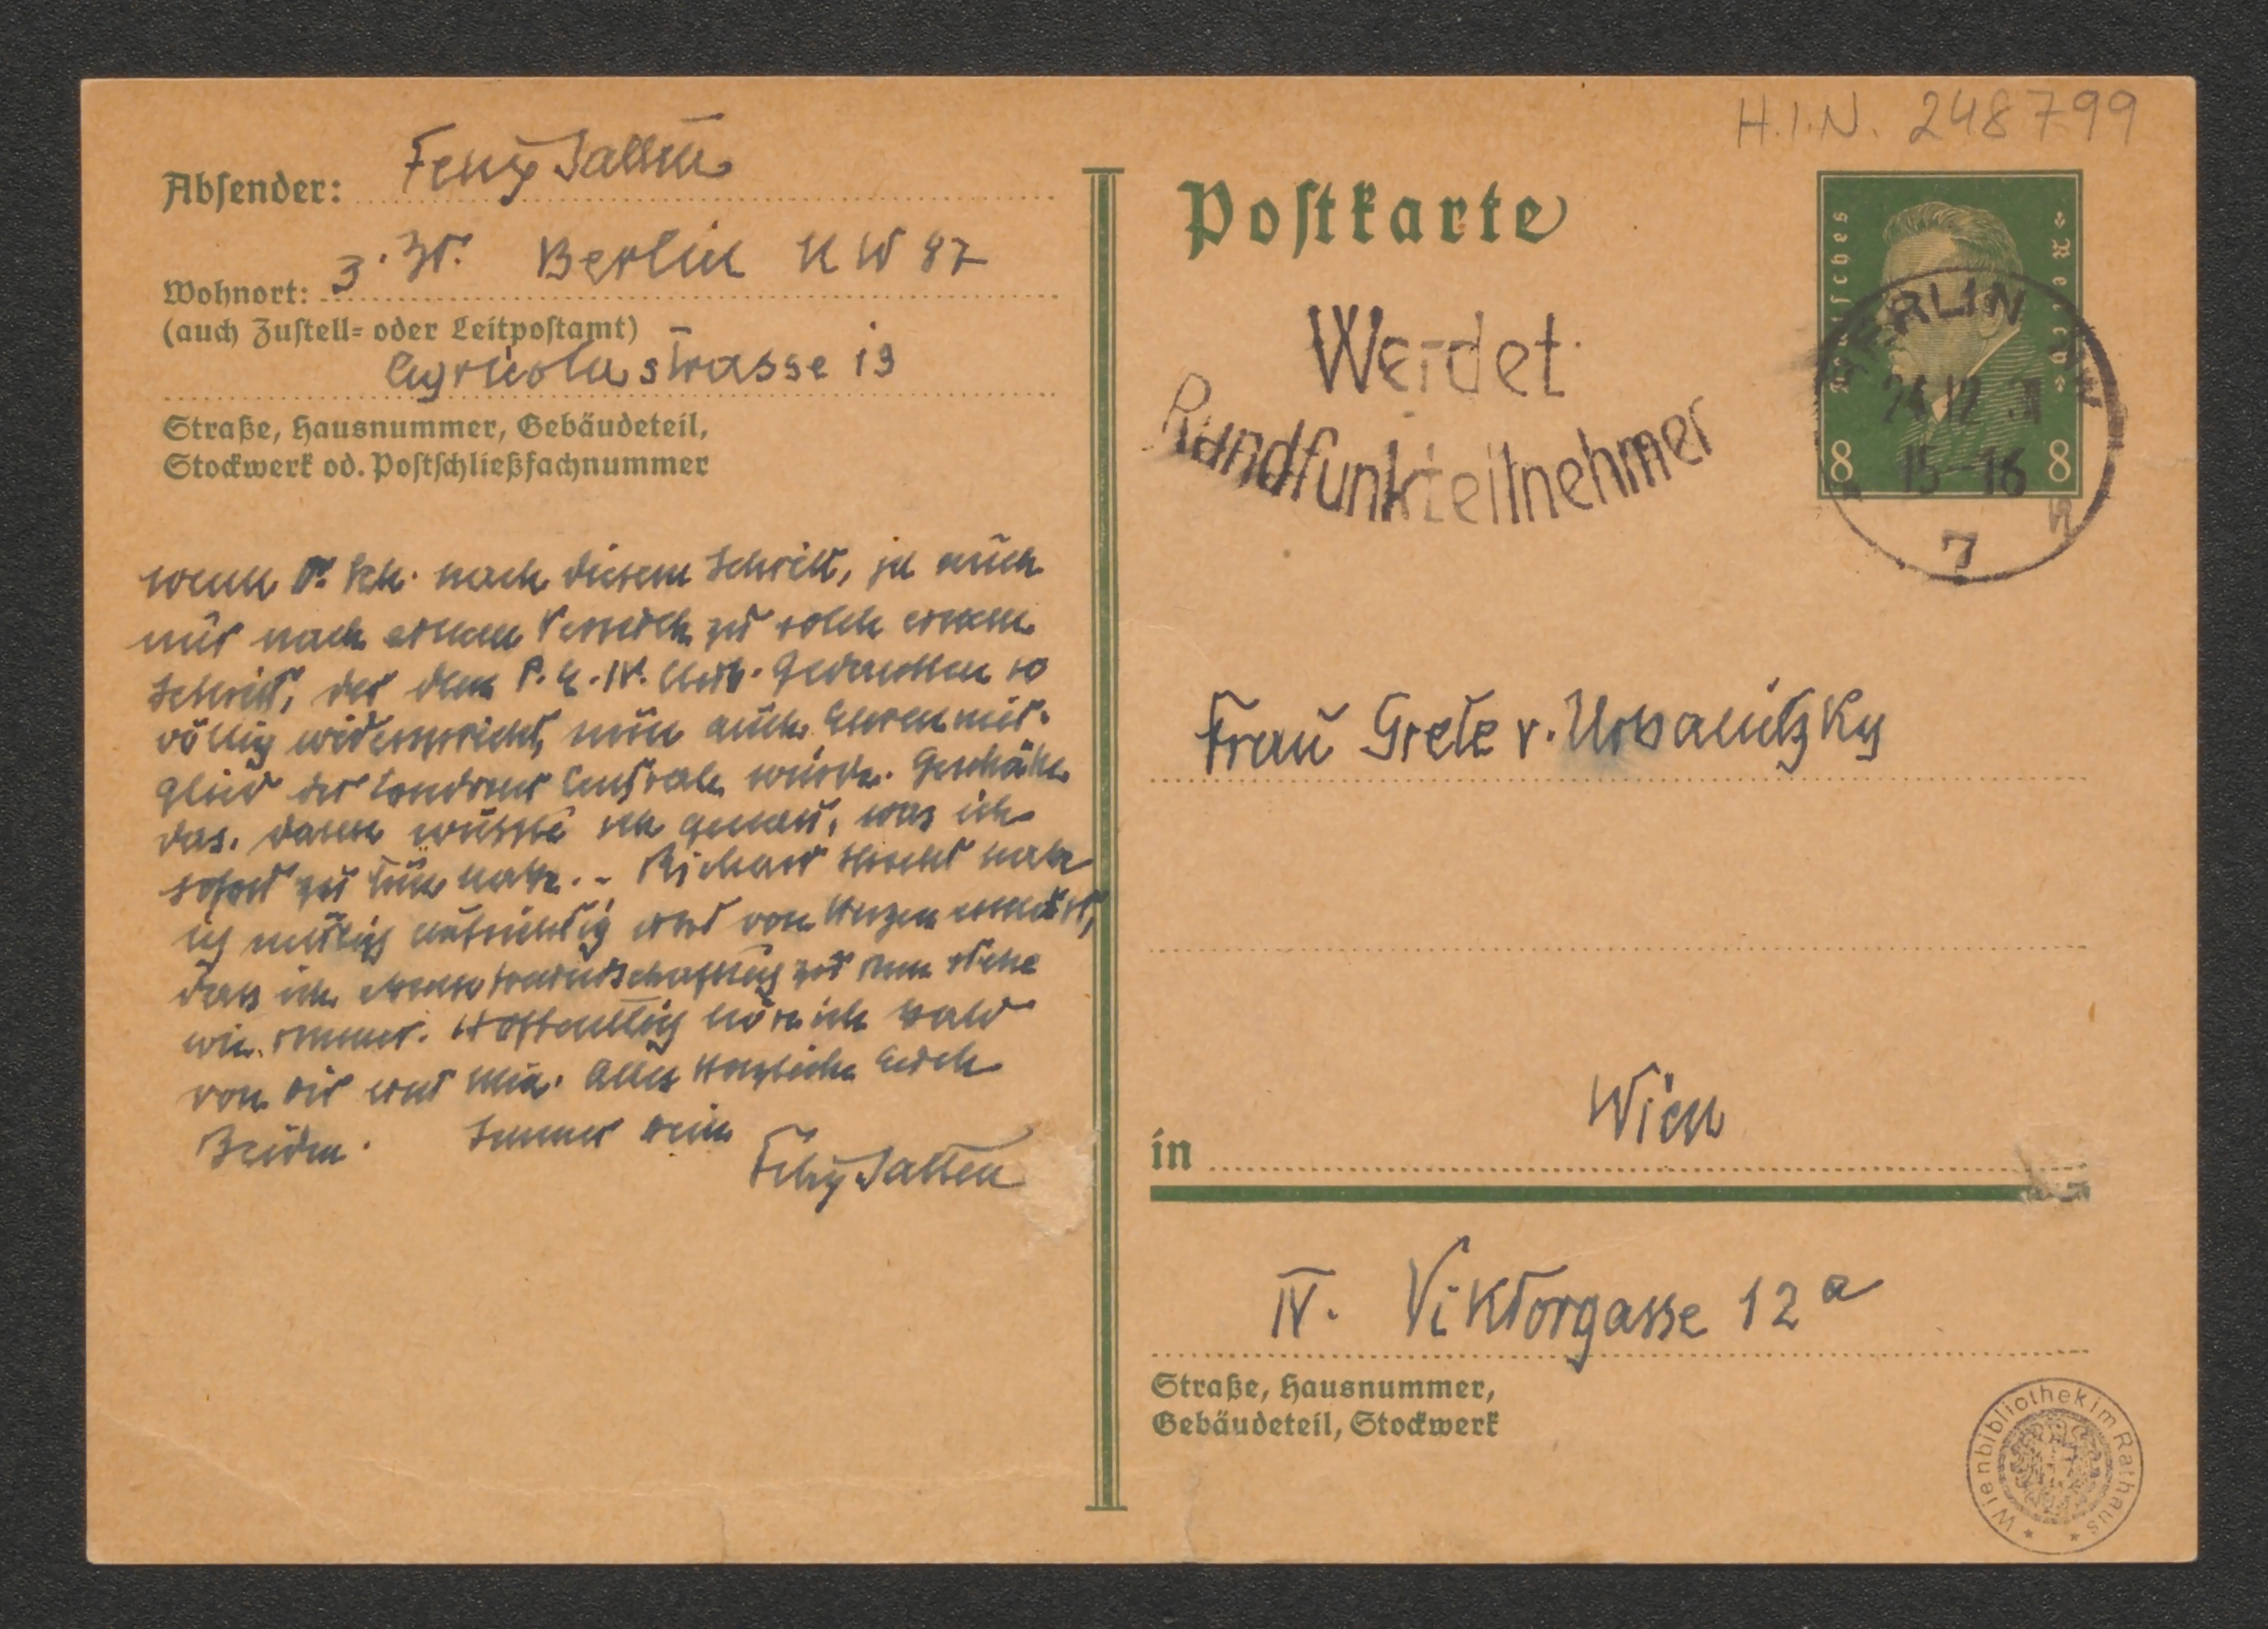 H.I.N. 248799
Absender: Felix Salten
Wohnort: z. Zt. Berlin NW 87
(auch Zustell- oder Leitpostamt)
Agricolastrasse 13
Straße, Hausnummer, Gebäudeteil,
Stockwerk od. Postschließfachnummer
wenn nach diesem Schritt, ja auch
nur nach einem Versuch zu solch einem
Schritt, der dem P.E.N. Club-Gedanken so
völlig widerspricht, nun auch Ehrenmit-
glied der Londoner Centrale würde. Geschähe
das, dann wüsste ich genau, was ich
sofort zu tun habe. - Richard habe
ich aufrichtig und von Herzen
dass ich freundschaftlich zu ihm stehe
wie immer. Hoffentlich höre ich bald
von Dir und Mia. Alles Herzliche Euch
Beiden. Immer Dein
Felix Salten
Postkarte
Werdet
Rundfunkteilnehmer
Deutsches Reich
8 8
BERLIN NW
24.12.31
15-16
7
Frau Grete v. Urbanitzky
in Wien
IV. Viktorgasse 12a
Straße, Hausnummer,
Gebäudeteil, Stockwerk
Wienbibliothek im Rathaus